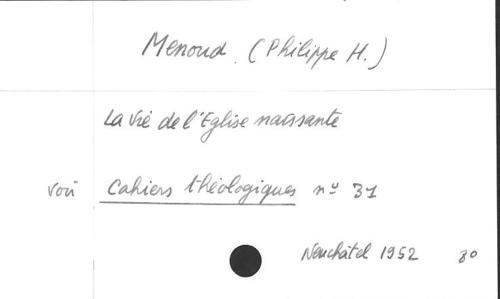 Menoud. (Philippe H.)
La Vie de l'Eglise naissante
voir Cahiers théologiques nº 31
Neuchâtel 1952 80